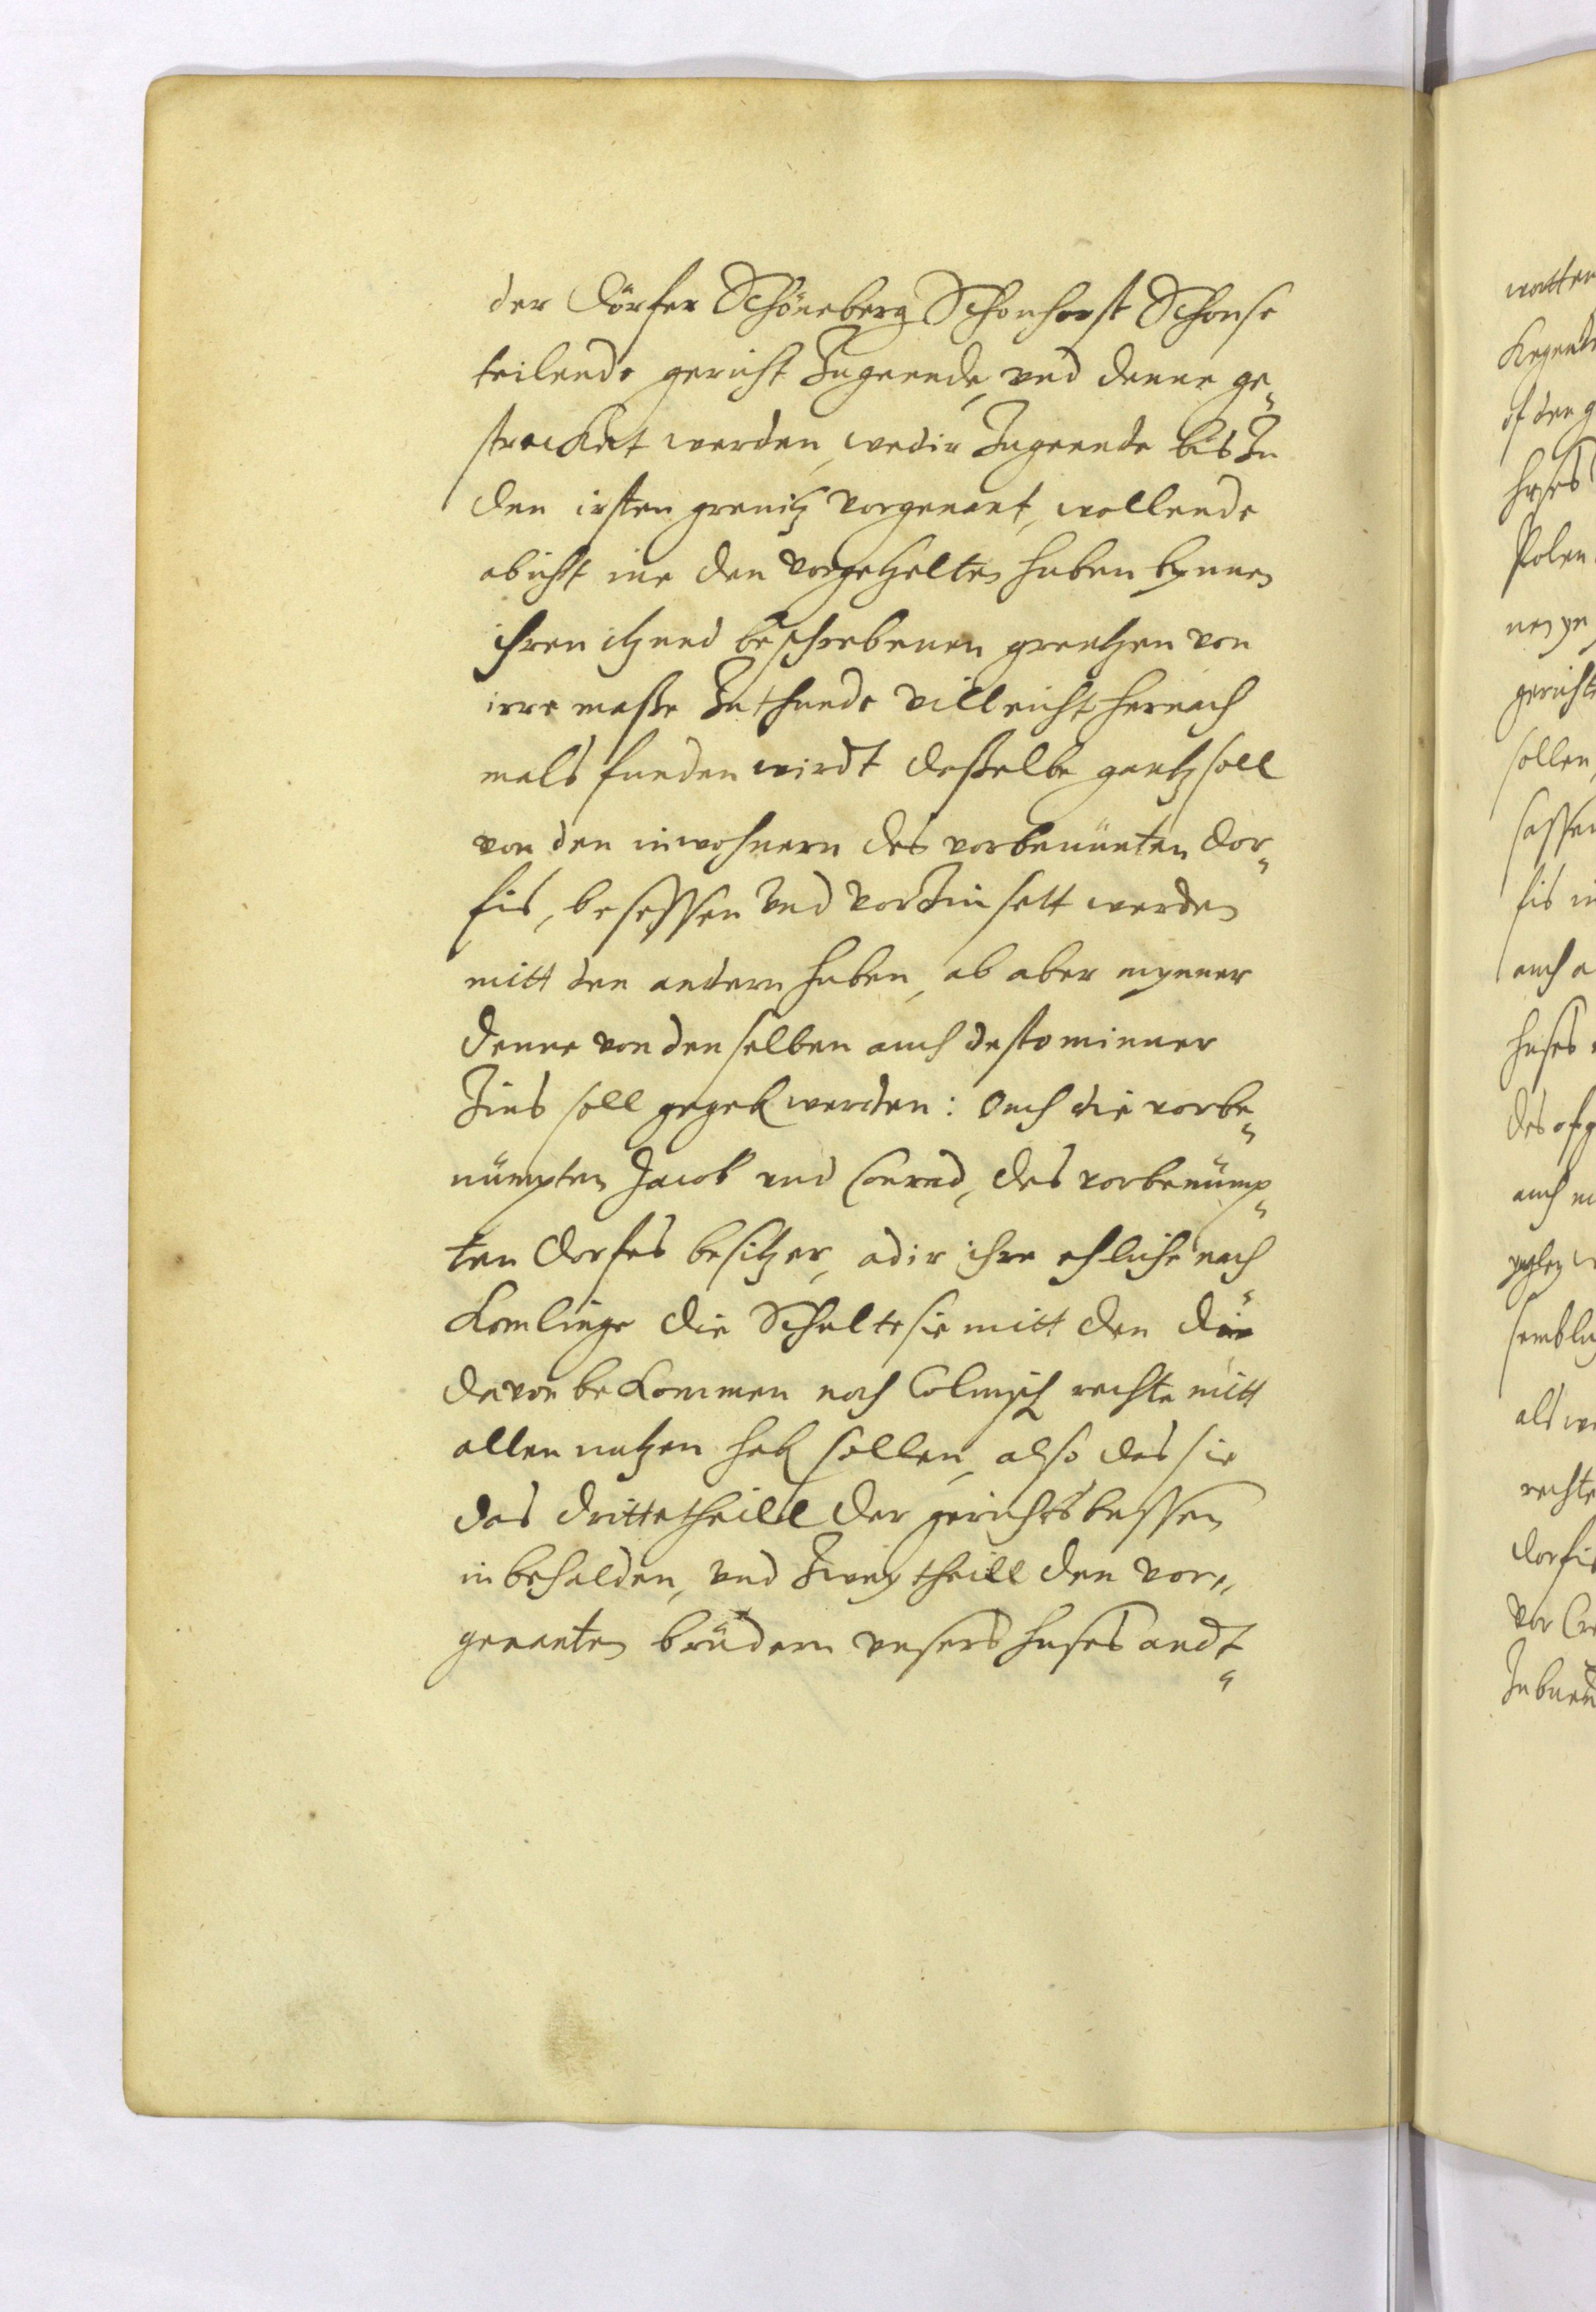 der Dörfer Schöneberg Schonhorst Schonse
teilende gericht Zugeende, und denne ge„
strecket werden, wedir Zugeende bis Zu
den irsten grenitz vorgenant, wollende
obicht me den vorgetzelten huben bynnen
ihren itzund beschrebenen grentzen von
irre maße Zuthunde villeicht hernach
mals funden wirdt dasselbe gantz soll
von den inwohnern des vorbenünten dor„
fis, besessen und vorZinsett werden
mitt den andern huben, ab aber mynner
denne von denselben auch desto minner
Zins soll gegeb werden: Ouch die vorbe„
nümpten Jacob und Conrad, des vorbenümp„
ten dorfes besitzer, adir ihre ehliche nach„
Komlinge die Schultesie mitt den die
davon beKommen noch Colmisch rechte mitt
allen nutzen hab sollen, also das sie
das drittetheill der gerichts bussen
in behalden, und Zwey theill den vor„
genanten brüdern unsers huses andt„
watten
Kegente
of den g
huses
Polen
gerichte
sollen
sassen
fis in
auch a
huses
des ofg
auch m
semblu
als w
rechte
dorfis